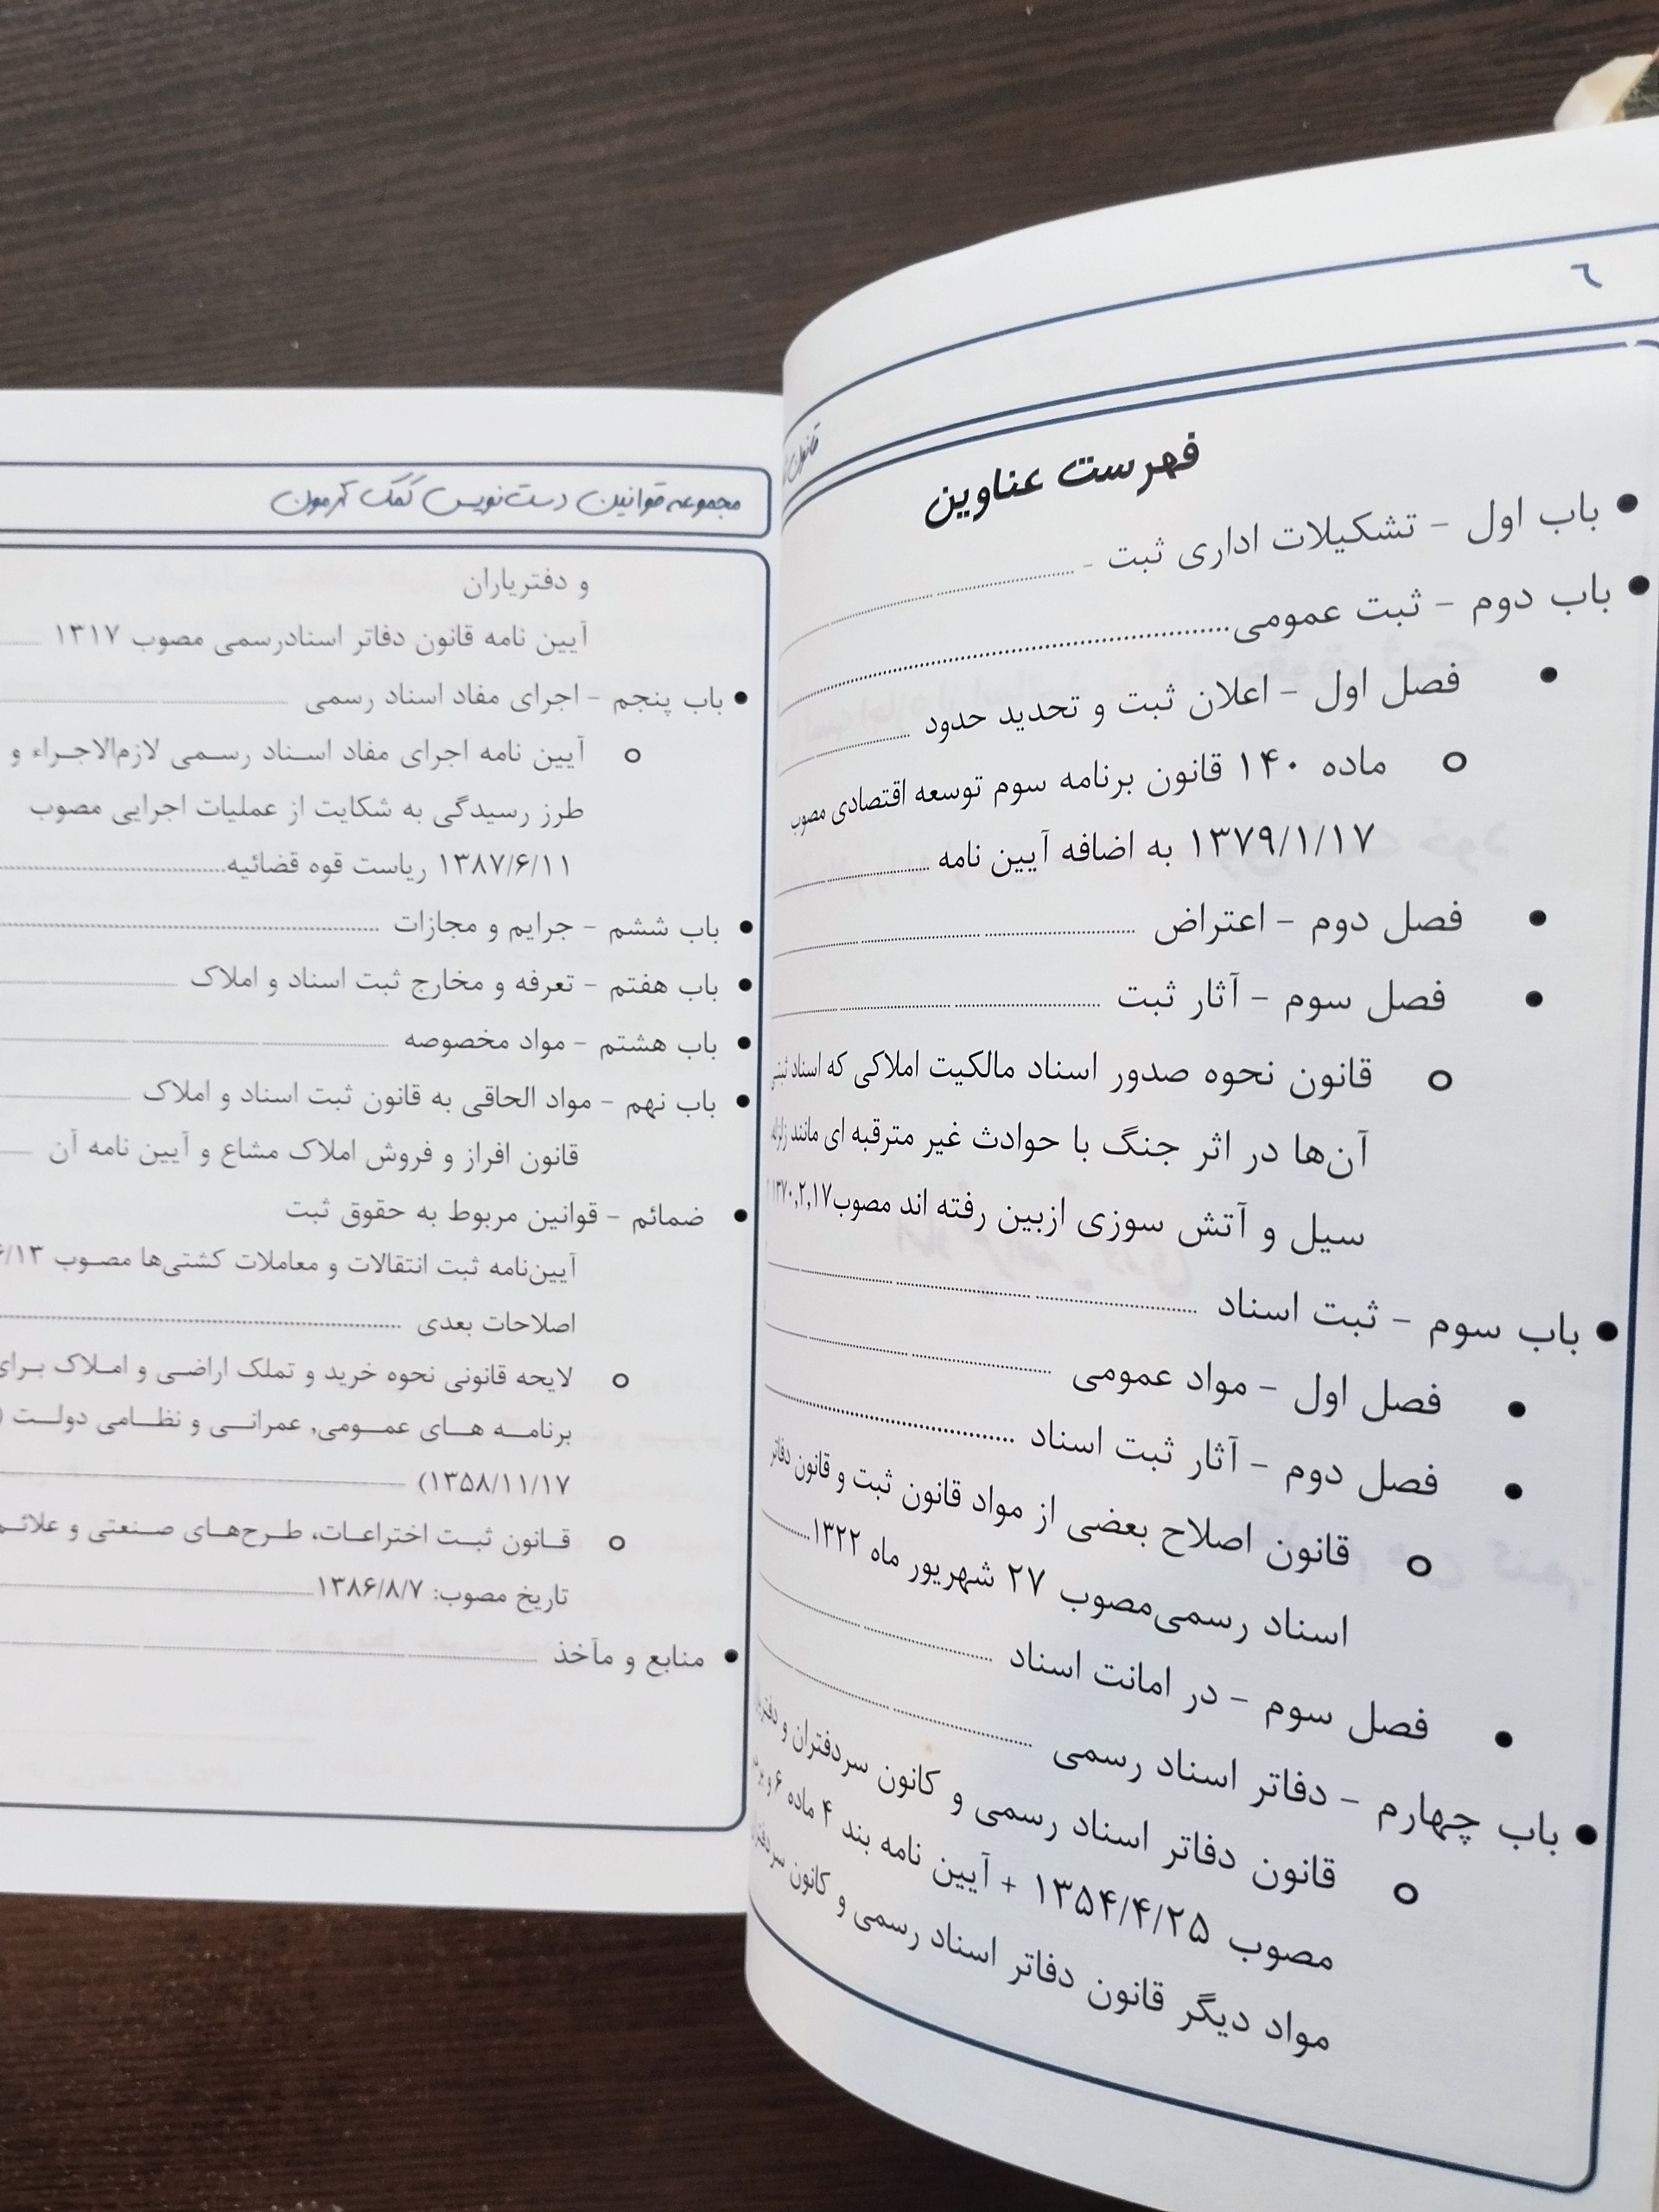 ٦
قانون
فهرست عناوین
• باب اول – تشکیلات اداری ثبت -
• باب دوم – ثبت عمومی
• فصل اول – اعلان ثبت و تحدید حدود
○ ماده ۱۴۰ قانون برنامه سوم توسعه اقتصادی مصوب
۱۳۷۹/۱/۱۷ به اضافه آیین نامه
• فصل دوم – اعتراض
• فصل سوم – آثار ثبت
○ قانون نحوه صدور اسناد مالکیت املاکی که اسناد ثبتی
آن‌ها در اثر جنگ با حوادث غیر مترقبه ای مانند زلزله
سیل و آتش سوزی ازبین رفته اند مصوب۱۳۷۰,۲,۱۷
• باب سوم – ثبت اسناد
• فصل اول – مواد عمومی
• فصل دوم – آثار ثبت اسناد
○ قانون اصلاح بعضی از مواد قانون ثبت و قانون دفاتر
اسناد رسمی‌مصوب ۲۷ شهریور ماه ۱۳۲۲
• فصل سوم – در امانت اسناد
• باب چهارم – دفاتر اسناد رسمی
○ قانون دفاتر اسناد رسمی و کانون سردفتران و
مصوب ۱۳۵۴/۴/۲۵ + آیین نامه بند ۴ ماده ۶ و
مواد دیگر قانون دفاتر اسناد رسمی و کانون
مجموعه قوانین دست‌نویس کمک آزمون
و دفتریاران
آیین نامه قانون دفاتر اسنادرسمی مصوب ۱۳۱۷
• باب پنجم – اجرای مفاد اسناد رسمی
○ آیین نامه اجرای مفاد اسناد رسمی لازم‌الاجراء و
طرز رسیدگی به شکایت از عملیات اجرایی مصوب
۱۳۸۷/۶/۱۱ ریاست قوه قضائیه
• باب ششم – جرایم و مجازات
• باب هفتم – تعرفه و مخارج ثبت اسناد و املاک
• باب هشتم – مواد مخصوصه
• باب نهم – مواد الحاقی به قانون ثبت اسناد و املاک
قانون افراز و فروش املاک مشاع و آیین نامه آن
• ضمائم – قوانین مربوط به حقوق ثبت
آیین‌نامه ثبت انتقالات و معاملات کشتی‌ها مصوب ۶/۱۳
اصلاحات بعدی
○ لایحه قانونی نحوه خرید و تملک اراضی و املاک برای
برنامه های عمومی, عمرانی و نظامی دولت (
۱۳۵۸/۱۱/۱۷)
○ قانون ثبت اختراعات، طرح‌های صنعتی و علائم
تاریخ مصوب: ۱۳۸۶/۸/۷
• منابع و مآخذ